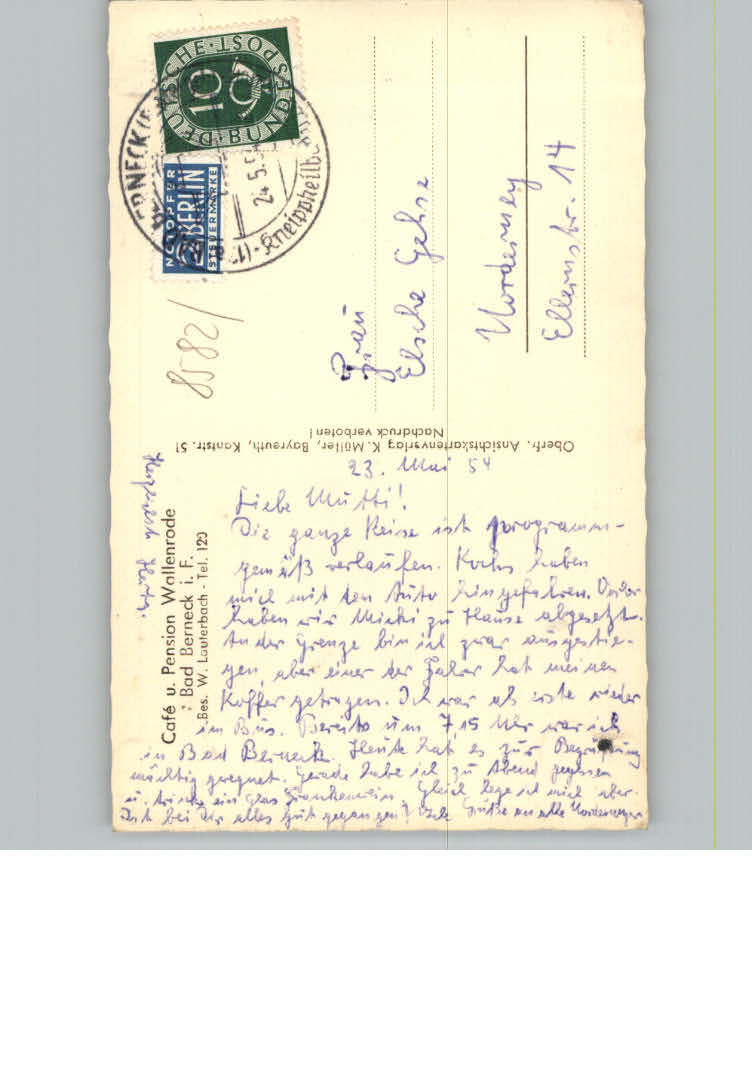 DEUTSCHE · BUNDESPOST
10
NOTOPFER
2 BERLIN
STEUERMARKE
24.5.5
Kneippheilb
8582/
Frau
Elsche Gehse
Norderney
Ellernstr. 14
Oberfr. Ansichtskartenverlag K. Müller, Bayreuth, Kantstr. 51
Nachdruck verboten!
Café u. Pension Wallenrode
Bad Berneck i. F.
Bes. W. Lauterbach - Tel. 129
23. Mai 54
Liebe Mutti!
Die ganze Reise ist programm-
gemäß verlaufen. Kochs haben
mich mit dem Auto hingefahren. Vorher
haben wir Micki zu Hause abgesetzt.
An der Grenze bin ich zwar ausgestie-
gen, aber einer der Fahrer hat meinen
Koffer getragen. Ich war als erste wieder
im Bus. Bereits um 7,15 Uhr war ich
in Bad Berneck. Heute hat es zur Begrüßung
mächtig geregnet. Gerade habe ich zu Abend gegessen
u. trinke ein Glas Frankenwein. Gleich lege ich mich aber.
Ist bei Dir alles gut gegangen? Viele Grüße an alle Norderneyer
Herzlichst